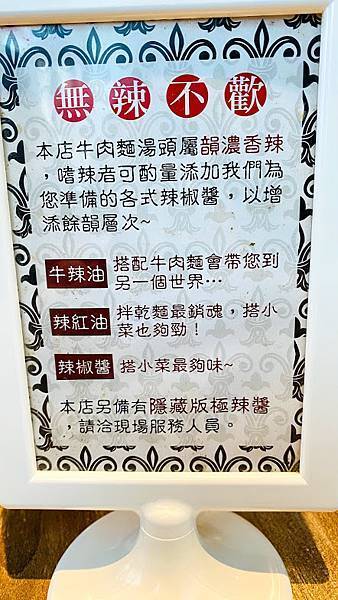 無辣不歡
本店牛肉麵湯頭屬韻濃香辣
，嗜辣者可酌量添加我們為
您準備的各式辣椒醬，以增
添餘韻層次~
牛辣油 搭配牛肉麵會帶您到
另一個世界…
辣紅油 拌乾麵最銷魂，搭小
菜也夠勁！
辣椒醬 搭小菜最夠味~
本店另備有隱藏版極辣醬
，請洽現場服務人員。